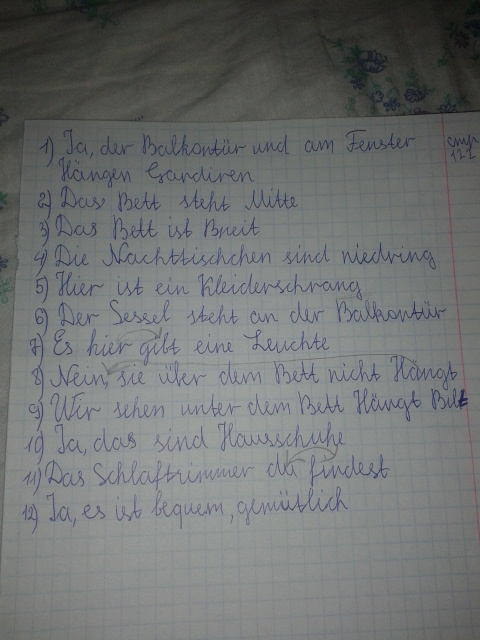 1) Ja, der Balkontür und am Fenster
Hängen Gardiren
стр 121
2) Das Bett steht Mitte
3) Das Bett ist Breit
4) Die Nachttischchen sind niedring
5) Hier ist ein Kleiderschrang
6) Der Sessel steht an der Balkontür
7) Es hier gibt eine Leuchte
8) Nein, sie über dem Bett nicht Hängt
9) Wir sehen unter dem Bett Hängt Bilt
10) Ja, das sind Hausschuhe
11) Das Schlaftzimmer du findest
12) Ja, es ist bequem, gemütlich